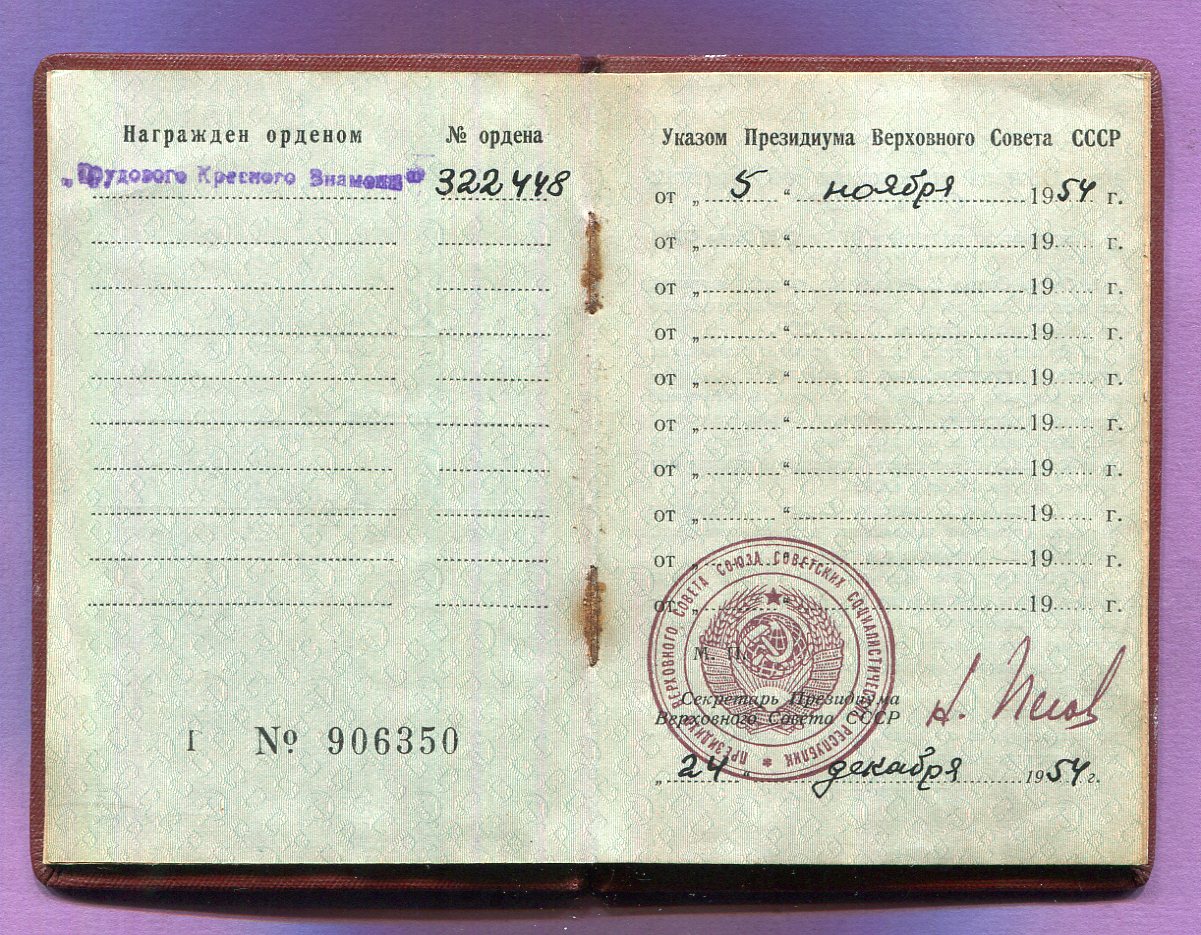 Награжден орденом № ордена
„Трудового Красного Знамени“ 322448
Г № 906350
Указом Президиума Верховного Совета СССР
от „ 5 “ ноября 1954 г.
от „ “ 19 г.
от „ “ 19 г.
от „ “ 19 г.
от „ “ 19 г.
от „ “ 19 г.
от „ “ 19 г.
от „ “ 19 г.
от „ “ 19 г.
от „ “ 19 г.
ПРЕЗИДИУМ ВЕРХОВНОГО СОВЕТА СОЮЗА СОВЕТСКИХ СОЦИАЛИСТИЧЕСКИХ РЕСПУБЛИК
М. П.
Секретарь Президиума
Верховного Совета СССР Н. Пегов
„ 24 “ декабря 1954 г.